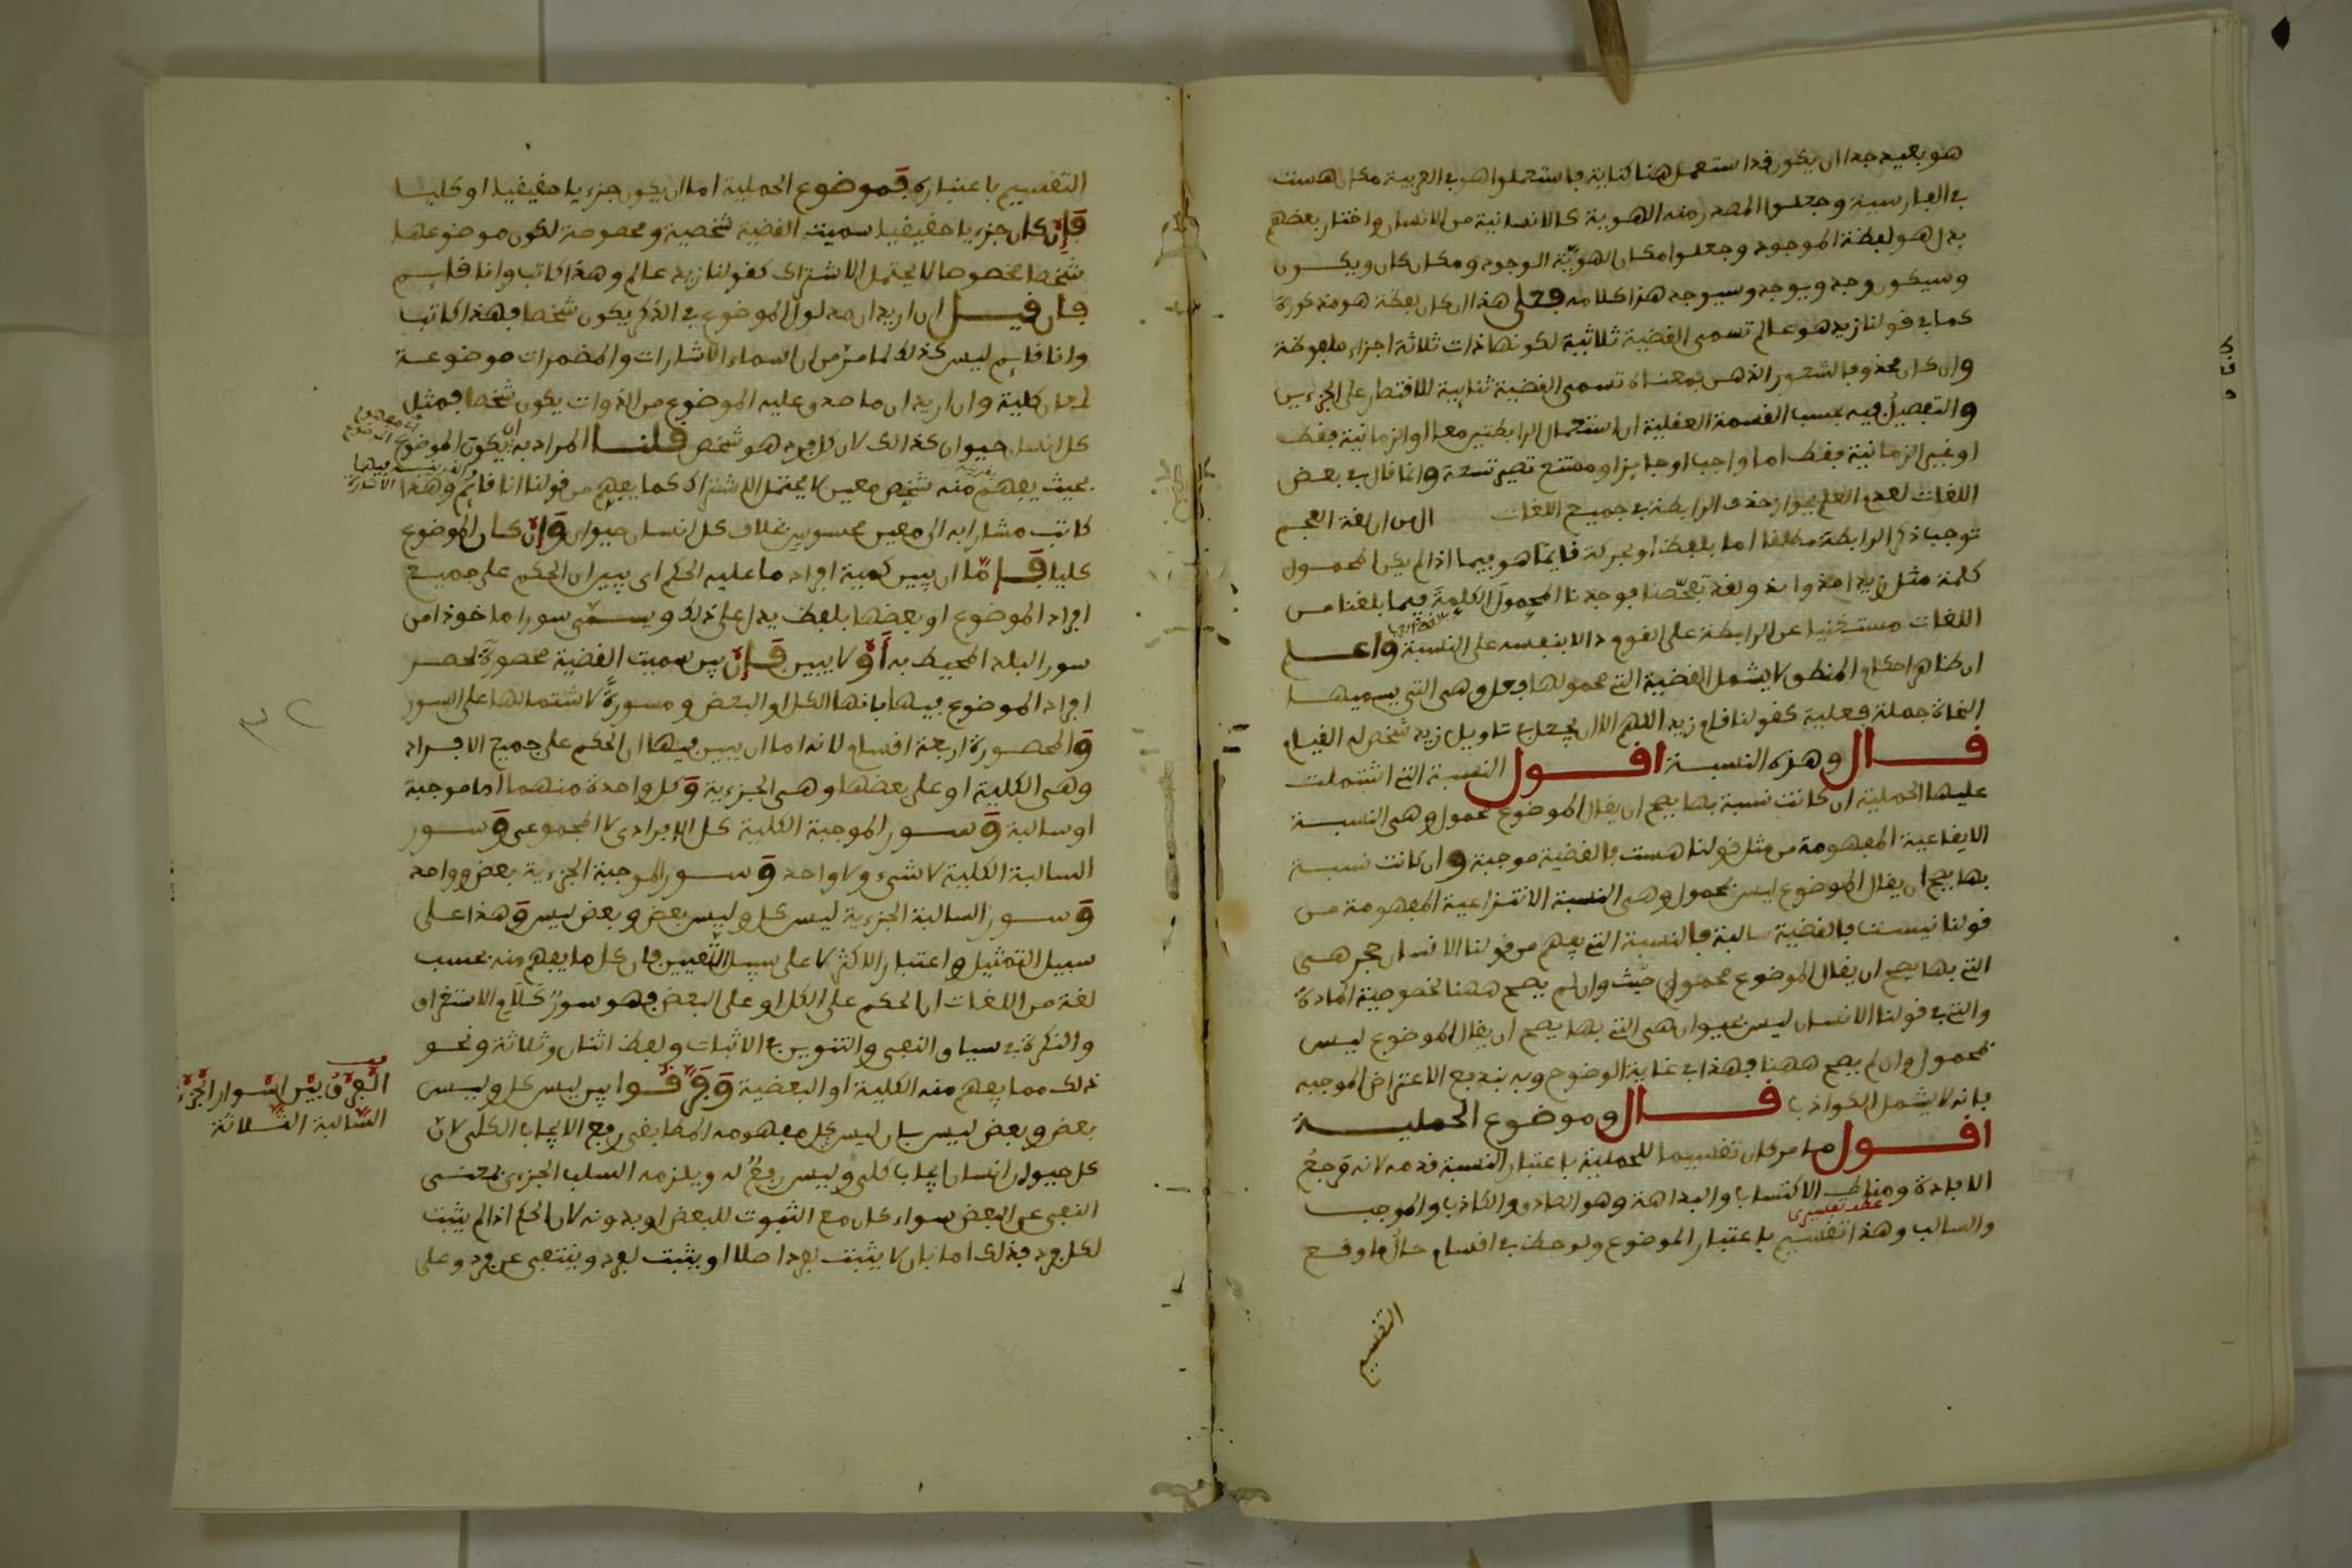 هو بعيد جدا ان يكون قد استعمل هنا كناية فاستعملوا هو في العربية مكان هست
في الفارسية وجعلوا المصدر منه الهوية كالانسانية من الانسان واختار بعضهم
بدل هو لفظة الموجود وجعلوا مكان الهويّة الوجود ومكان كان ويكون
وسيكون وجد ويوجد وسيوجد هذا كلامه فعلى هذا ان كان لفظة هو مذكورة
كما في قولنا زيد هو عالم تسمى القضية ثلاثية لكونها ذات ثلاثة اجزاء ملفوظة
وان كان محذوفا لشعور الذهن بمعناه تسمى القضية ثنائية للاقتصار على الجزءين
والتفصيل فيه بحسب القسمة العقلية ان استعمال الرابطتين معا او الزمانية فقط
او غير الزمانية فقط اما واجب او جايز او ممتنع تصير تسعة وانما قال في بعض
اللغات لعدم العلم بجواز حذف الرابطة في جميع اللغات ان لغة العجم
توجب ذكر الرابطة مطلقا اما بلفظ او بحركة قايمًا هو فيما اذا لم يكن المحمول
كلمة مثل زيد امد واند ولقد تفحّصنا فوجدنا المحمول الكلمةَ فيما بلغنا من
اللغات مستغنيا عن الرابطة على انفودا لابنفسه على النسبة واعلم
ان ظاهر احكام المنطق لا يشمل القضية التي محمولها فعل وهي التي يسميها
النحاة جملة فعلية كقولنا قام زيد اللهم الا ان يجعل بتاويل زيد شخص له القيام
قال وهذه النسبة اقول النسبة التي اشتملت
عليها الحملية ان كانت نسبة بها يصح ان يقال الموضوع محمول وهي النسبة
الايقاعية المفهومة من مثل قولنا هست فالقضية موجبة وان كانت نسبة
بها يصح ان يقال الموضوع ليس بمحمول وهي النسبة الانتزاعية المفهومة من
قولنا نيست فالقضية سالبة فالنسبة التي يفهم من قولنا الانسان حجر هي
التي بها يصح ان يقال الموضوع محمول من حيث وان لم يصح ههنا لخصوصية المادة
والتي في قولنا الانسان ليس بحيوان هي التي بها يصح ان يقال الموضوع ليس
بمحمول وان لم يصح ههنا فهذا في غاية الوضوح وبه يندفع الاعتراض الموجبه
بانه لا يشمل الكواذب قال وموضوع الحملية
اقول ما مر كان تقسيما للحملية باعتبار النسبة قدمه لانه مرجعُ
الافادة ومناط الاكتساب والبداهة وهو الصادق والكاذب والموجب
عقد تقسيري
والسالب وهذا تقسيم باعتبار الموضوع ولوحظ في اقسام حالُ ما وقع
التقسيم
التقسيم باعتباره فموضوع الحملية اما ان يكون جزءيا حقيقيا او كليا
فان كان جزءيا حقيقيا سميت القضية شخصية ومخصوصة لكون موضوعها
شخصا مخصوصا لا يحتمل الاشتراك كقولنا زيد عالم وهذا كاتب وانا قايم
فان قيل ان اريد ان مدلول الموضوع في الذكر يكون شخصا فهذا كاتب
وانا قايم ليس كذلك لما مرّ من ان اسماء الاشارات والمضمرات موضوعة
لمعان كلية وان اريد ان ما صدق عليه الموضوع من الذوات يكون شخصا فمثل
كل انسان حيوان كذالك لان كل فرد هو شخص قلنا المراد به ان يكون الموضوع
بحيث يفهم منه شخص معين لا يحتمل الاشتراك كما يفهم من قولنا انا قايم وهذا
كاتب مشارا به الى معين محسوس بخلاف كل انسان حيوان وان كان الموضوع
كليا فامّا ان يبين كمية افراد ما عليه الحكم اي يبين ان الحكم على جميع
افراد الموضوع او بعضها بلفظ يدل على ذلك ويسمّى سورا ماخوذا من
سور البلد المحيط به أو لا يبين فان بين سميت القضية محصورةً لحصر
افراد الموضوع فيها بانها الكل او البعض ومسورةً لاشتمالها على السور
والمحصورة اربعة اقسام لانه اما ان يبين فيها ان الحكم على جميع الافراد
وهي الكلية او على بعضها وهي الجزءية وكل واحدة منهما اما موجبة
او سالبة وسور الموجبة الكلية كل الافرادى لا المجموعى وسور
السالبة الكلية لا شىء ولا واحد وسور الموجبة الجزءية بعض وواحد
وسور السالبة الجزءية ليس كل وليس بعض وبعض ليس وهذا على
سبيل التمثيل واعتبار الاكثر لا على سبيل التعيين فان كل ما يفهم منه بحسب
لغة من اللغات ان الحكم على الكل او على البعض فهو سورٌ كلام الاستغراق
والنكرة في سياق النفى والتنوين في الاثبات ولفظ اثنان وثلاثة ونحو
ذلك مما يفهم منه الكلية او البعضية وفرّقوا بين ليس كل وليس
بعض وبعض ليس بان ليس كل مفهومه المطابقى رفع الايجاب الكلى لان
كل حيوان انسان ايجاب كلى وليس رفعٌ له ويلزمه السلب الجزءى بمعنى
النفى عن البعض سواء كان مع الثبوت للبعض او بدونه لان الحكم اذا لم يثبت
لكل فرد فذلك اما بان لا يثبت لفرد اصلا او يثبت لفرد وينتفى عن فرد وعلى
الفرق بين اسوار الجزءية
السالبة الثلاثة